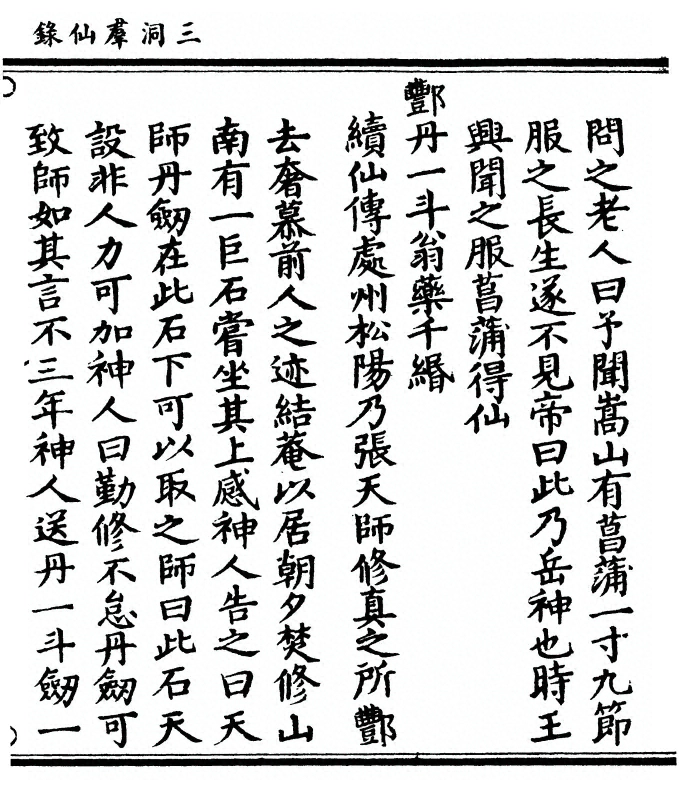 三洞羣仙錄
問之老人曰予聞嵩山有菖蒲一寸九節
服之長生遂不見帝曰此乃岳神也時王
興聞之服菖蒲得仙
酆丹一斗翁藥千緡
續仙傳處州松陽乃張天師修真之所酆
去奢慕前人之迹結菴以居朝夕焚修山
南有一巨石嘗坐其上感神人告之曰天
師丹劒在此石下可以取之師曰此石天
設非人力可加神人曰勤修不怠丹劒可
致師如其言不三年神人送丹一斗劒一